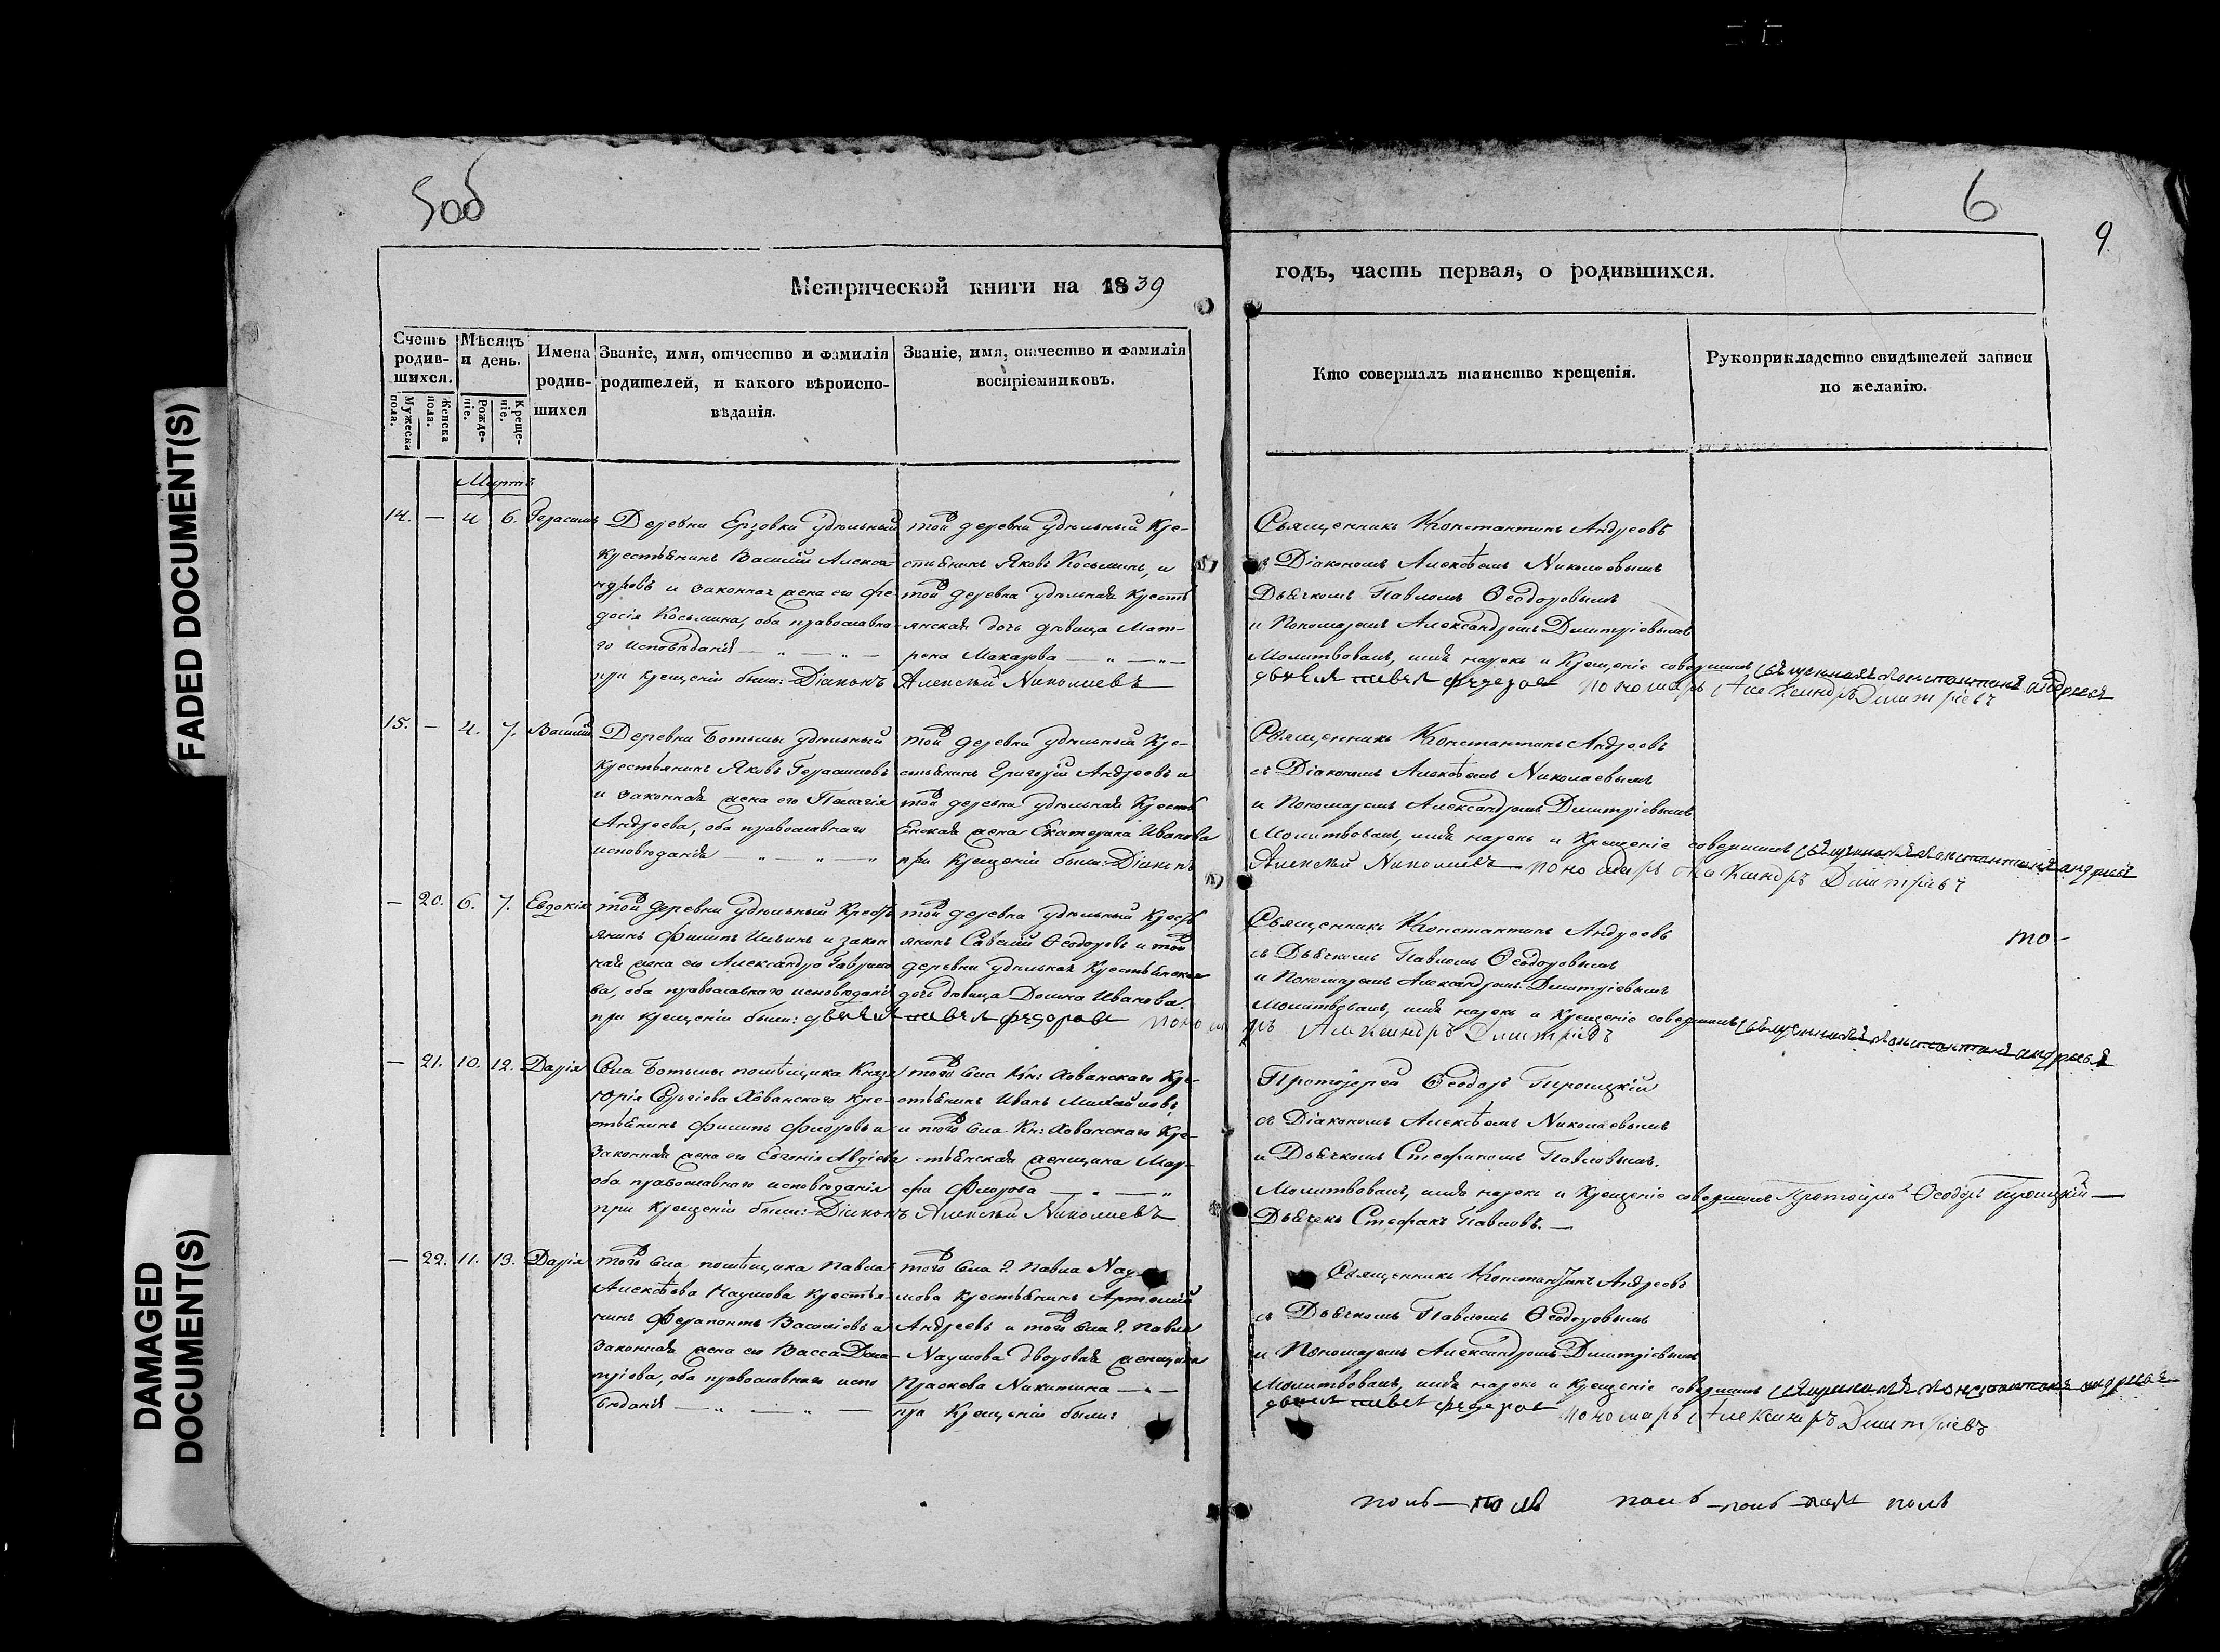 5об
6
9
Метрической книги на 1839
годъ, часть первая, о родившихся.
Счетъ родив-шихся.
Мужеска пола.
Женска пола.
Мѣсяцъ и день.
Рожде-ніе.
Креще-ніе.
Имена родив-шихся
Званіе, имя, отчество и фамилія
родителей, и какого вѣроиспо-
вѣданія.
Званіе, имя, отчество и фамилія
воспріемниковъ.
Кто совершалъ таинство крещенія.
Рукоприкладство свидѣтелей записи
по желанію.
Мартъ
14. — 4 6. Герасимъ
Деревни Ерзовки удѣльный
крестьянинъ Василій Алекса-
ндровъ и законная жена его Фе-
досія Косьмина, оба православна-
го исповѣданія — „ — „ —
при крещеніи были: Діаконъ Алексѣй Николаевъ
той деревни удѣльный кре-
стьянинъ Яковъ Косьминъ, и
той деревни удѣльная кресть
янская дочь дѣвица Мат-
рена Макарова — „ — „ —
Священникъ Константинъ Андреевъ
съ Діакономъ Алексѣемъ Николаевымъ
Дьячкомъ Павломъ Ѳеодоровымъ
и Пономаремъ Александромъ Димитріевымъ
Молитвовалъ, имя нарекъ и Крещеніе совершилъ священникъ Константинъ Андреевъ
дьячекъ павелъ федоровъ пономарь Александръ Димитріевъ
15. — 4. 7. Василій
Деревни Ботьмы удѣльный
крестьянинъ Яковъ Герасимовъ
и законная жена его Пелагія
Андреева, оба православнаго
исповѣданія — „ — „ — „
той деревни удѣльный кре-
стьянинъ Григорій Андреевъ и
той деревни удѣльная кресть
янская жена Екатерина Иванова
при Крещеніи были: Діаконъ
Священникъ Константинъ Андреевъ
съ Діакономъ Алексѣемъ Николаевымъ
и Пономаремъ Александромъ Димитріевымъ
Молитвовалъ, имя нарекъ и Крещеніе совершилъ священникъ Константинъ Андреевъ
Алексѣй Николаевъ пономарь Александръ Димитріевъ
— 20. 6. 7. Евдокія
той деревни удѣльный крестъ
янинъ Филипъ Ильинъ и закон
ная жена его Александра Гаврило
ва, оба православнаго исповѣданія
при крещеніи были: дьячекъ павелъ федоровъ пономарь Александръ Димитріевъ
той деревни удѣльный крестъ
янинъ Савелій Ѳеодоровъ и той
деревни удѣльная крестьянская
дочь дѣвица Домна Иванова.
Священникъ Константинъ Андреевъ
съ Дьячкомъ Павломъ Ѳеодоровымъ
и Пономаремъ Александромъ Димитріевымъ
Молитвовалъ, имя нарекъ и Крещеніе совершилъ священникъ Константинъ Андреевъ
то-
— 21. 10. 12. Дарія
Села Ботьмы помѣщика Князя
Юрія Сергіева Хованскаго кре-
стьянинъ Филипъ Флоровъ и
законная жена его Евгенія Авдіева
оба православнаго исповѣданія
при Крещеніи были: Діаконъ Алексѣй Николаевъ
того села Кн: Хованскаго кре-
стьянинъ Иванъ Михайловъ,
и того села Кн: Хованскаго кре-
стьянская женщина Мар-
фа Флорова — „ — „
Протоіерей Ѳеодоръ Троицкій
съ Діакономъ Алексѣемъ Николаевымъ
и Дьячкомъ Стефаномъ Павловымъ.
Молитвовалъ, имя нарекъ и Крещеніе совершилъ Протоіерей Ѳеодоръ Троицкій —
Дьячекъ Стефанъ Павловъ. —
— 22. 11. 13. Дарія
того села помѣщика Павла
Алексѣева Наумова крестья-
нинъ Ферапонтъ Василіевъ и
законная жена его Васса Дми-
тріева, оба православнаго испо
вѣданія — „ — „ —
того села Г. Павла Нау
мова крестьянинъ Артемій
Андреевъ и того села Г. Павла
Наумова дворовая женщина
Праскева Никитина — „ —
При Крещеніи были:
Священникъ Константинъ Андреевъ
съ Дьячкомъ Павломъ Ѳеодоровымъ
и Пономаремъ Александромъ Димитріевымъ
Молитвовалъ, имя нарекъ и Крещеніе совершилъ священникъ Константинъ Андреевъ
дьячекъ павелъ федоровъ пономарь Александръ Димитріевъ
поль — поль поль — поль — поль
FADED DOCUMENT(S)
DAMAGED
DOCUMENT(S)